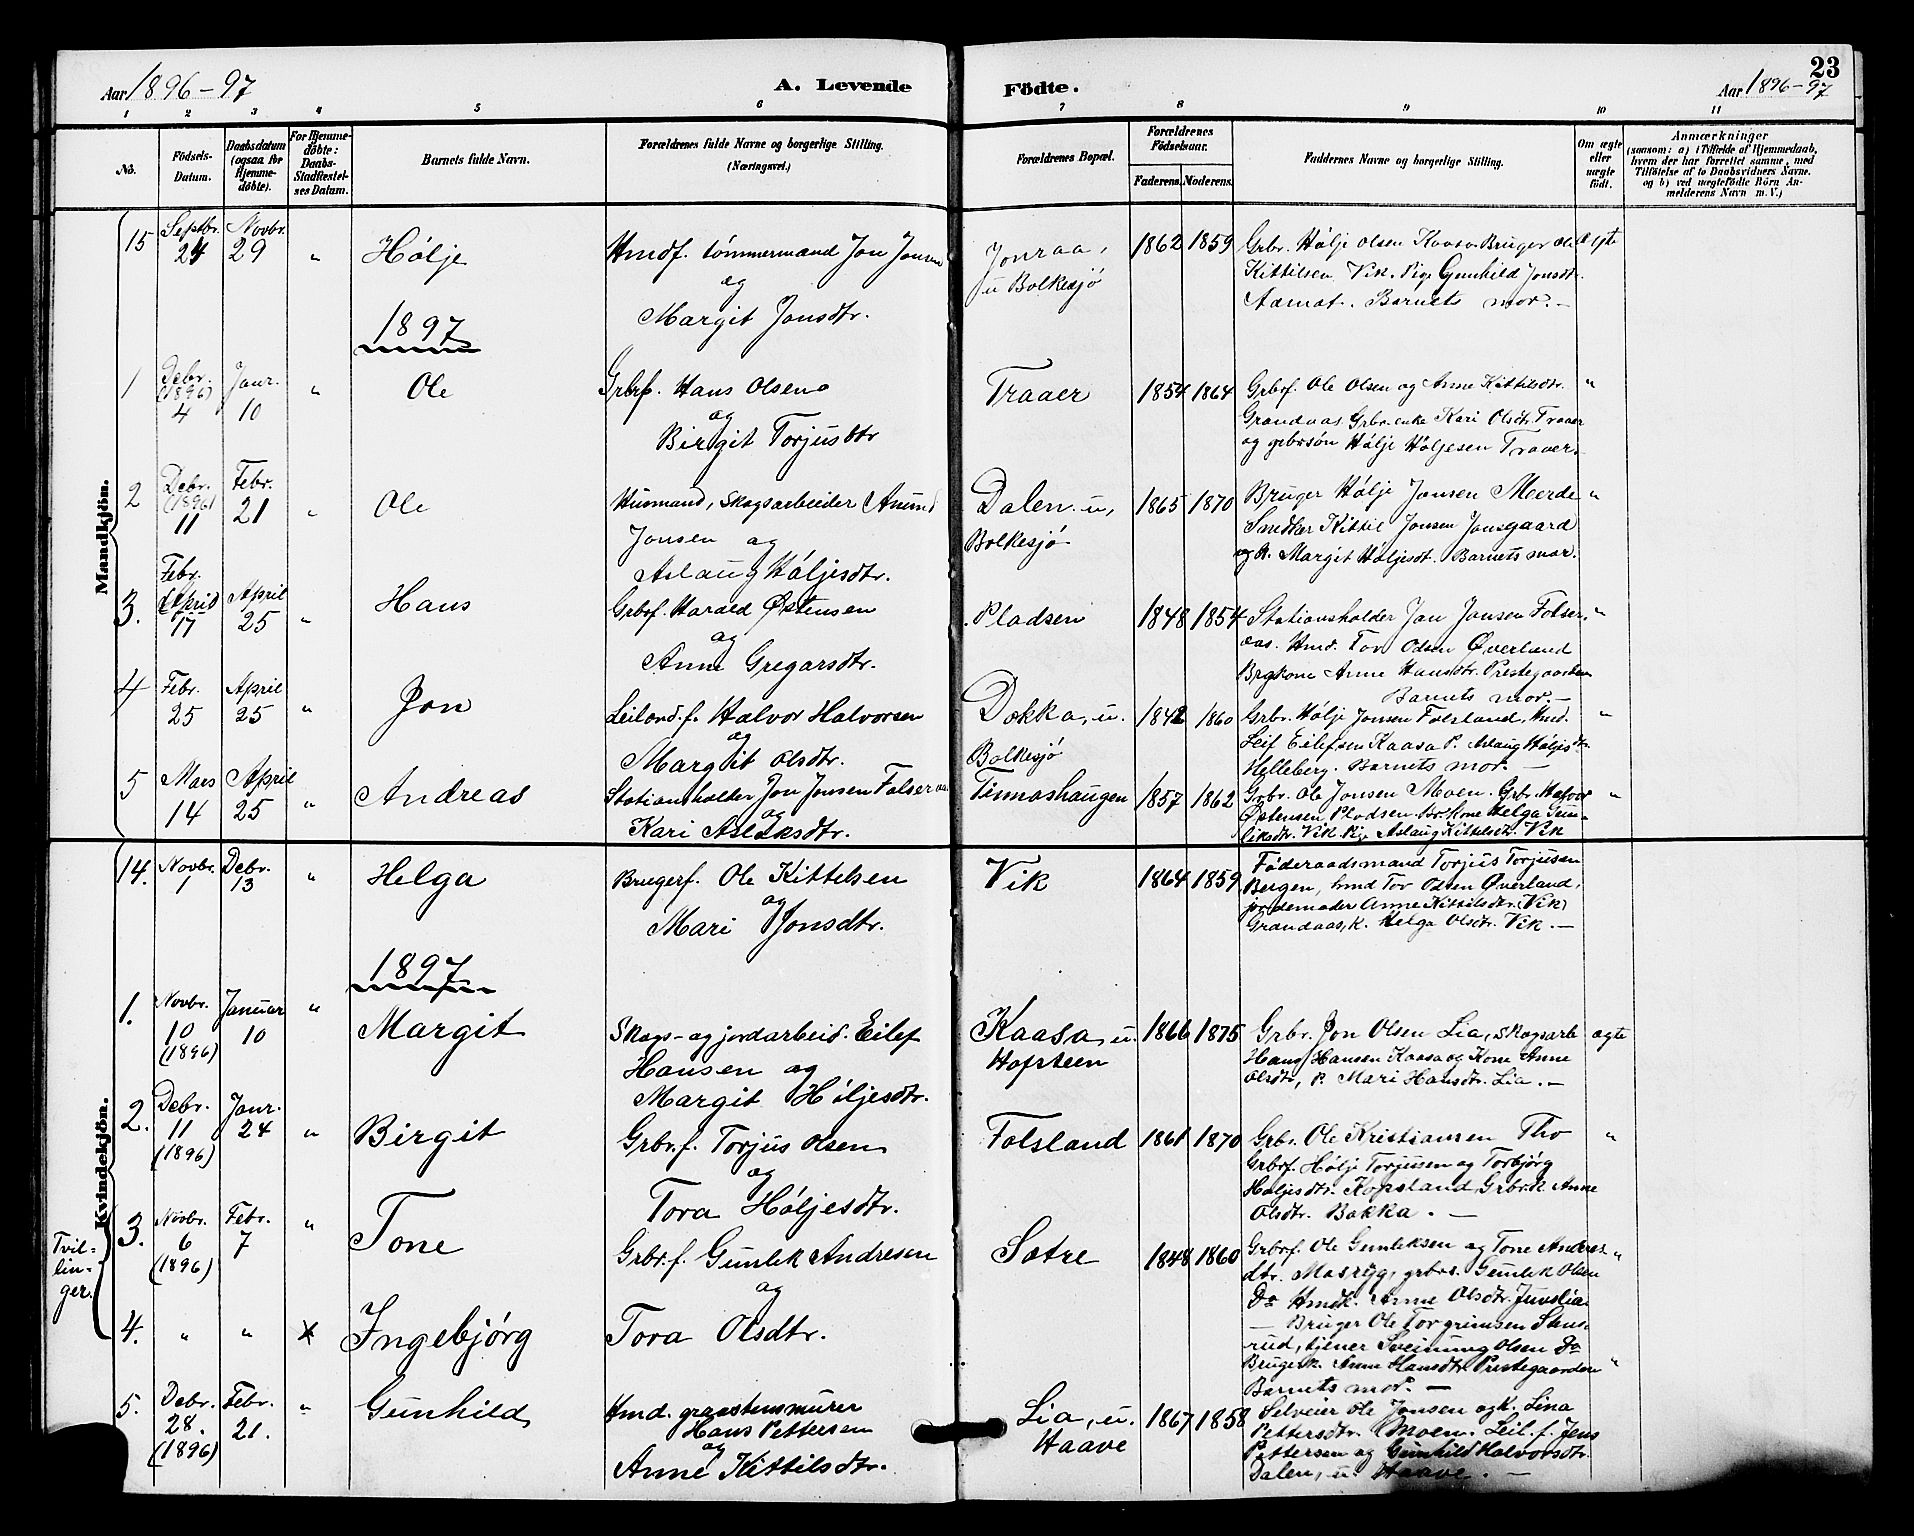 Aar 1896-97 A. Levende Födte. Aar 1896-97 23
1 2 3 4 5 6 7 8 9 10 11
No. Födsels-Datum. Daabsdatum (ogsaa for Hjemmedöbte). For Hjemmedöbte: Daabs-Stadfæstelses Datum. Barnets fulde Navn. Forældrenes fulde Navne og borgerlige Stilling. (Næringsvei.) Forældrenes Bopæl. Forældrenes Födselsaar. Faderens. Moderens. Faddernes Navne og borgerlige Stilling. Om ægte eller uægte födt. Anmærkninger (saasom: a) i Tilfælde af Hjemmedaab, hvem der har forrettet samme, med Tilföielse af to Daabsvidners Navne, og b) ved uægtefödte Börn Anmelderens Navn m. V.)
Mandkjön.
15 Septbr. 24 Novbr. 29 " Hølje Hmdf. tømmermand Jon Jonsen
og
Margit Jonsdtr.
Jonraa,
u Bolkesjö
1862 1859 Grbr. Hølje Olsen Kaasa. Bruger Ole ægte
Kittilsen Vik. Pige Gunhild Jonsdt.
Aamot. Barnets mor. —
1897
1 Debr. (1896) 4 Janr. 10 " Ole Grbrf. Hans Olsen
og
Birgit Torjusdtr
Traaer 1854 1864 Grbrf. Ole Olsen og Anne Kittilsdtr. "
Grandaas. Grbr. enke Kari Olsdtr. Traaer
og grbrsøn Hølje Høljesen Traaer.
2 Debr. (1896) 11 Febr. 21 " Ole Husmand, Skogsarbeider Anund
Jonsen og
Aslaug Høljesdtr.
Dalen u,
Bolkesjö
1865 1870 Bruger Hølje Jonsen Meerde "
Kittil Jonsen Jonsgaard
og Margit Høljesdt. Barnets mor.
3. Febr. 17 April 25 " Hans Grbrf. Harald Østensen
og
Anne Gregarsdtr.
Pladsen 1848 1854 Stationsholder Jon Jonsen Folser- "
aas. Hmd. Tov Odsen Øverland
Anne Hansdtr. Prestegaarden
Barnets mor. —
4 Febr. 25 April 25 " Jon Leilend.f. Halvor Halvorsen
og
Margit Olsdtr.
Dokka, u.
Bolkesjö
1842 1860 Grbr. Hølje Jonsen Folsland, Hmd. "
Leif Eilefsen Kaasa P. Aslaug Høljesdtr.
Helleberg. Barnets mor. —
5 Mars 14 April 25 " Andreas Stationsholder Jon Jonsen Folseraas
og
Kari Aslaksdtr.
Tinnoshaugen 1857 1862 Grbr. Ole Jonsen Moen. Grbr. Halvor "
Østensen Pladsen. Kone Helga Gun-
leksdtr. Vik. Pige Aslaug Kittelsdtr. Vik
Kvindekjön.
14. Novbr. 1 Debr. 13 " Helga Brugerf. Ole Kittelsen
og
Mari Jonsdtr.
Vik 1864 1859 Føderaadsmand Torjus Torjusen
Bergen, hmd Tov Odsen Øverland,
jordemoder Anne Kittilsdtr. (Vik)
Grandaas, k. Helga Olsdtr. Vik. —
1897
1. Novbr. 10 (1896) Januar 10 " Margit Skogs- og jordarbeid. Eilef
Hansen og
Margit Høljesdtr.
Kaasa, u.
Hofsteen
1866 1875 Grbr. Jon Olsen Lia, Skogsarb ægte
Hans Hansen Kaasa og Kone Anne
Olsdtr, P. Mari Hansdtr. Lia. —
2. Debr. 11 (1896) Janr. 24 " Birgit Grbr.f. Torjus Olsen
og
Tora Høljesdtr.
Folsland 1861 1870 Grbr. Ole Kristiansen Tho "
Grbrf. Hølje Torjusen og Torbjörg
Høljesdtr. Kopsland, Grbr.k Anne
Olsdtr. Bakka. —
Tvil-
lin-
ger.
3. Novbr. 6 (1896) Febr. 7 " Tone Grbr.f. Gunlek Andresen
og
Sætre 1848 1860 Grbrf. Ole Gunleksen og Tone Anders- "
dtr. Masryg, grbrs. Gunlek Olsen
Do Hmdk. Anne Olsdtr. Juvslia
4. " " X Ingebjörg Tora Olsdtr.
— Bruger Ole Torgrimsen Stens-
rud, tjener Sveinung Olsen Do
Brugerk. Anne Hansdtr. Prestegaarden "
Barnets mor. —
5. Debr. 28. (1896) Febr. 21. " Gunhild Hmd. graastensmurer
Hans Pettersen
og
Anne Kittilsdtr.
Lia, u.
Haave
1867 1858 Selveier Ole Jonsen og k. Lina
Pettersdtr. Moen. Leil. f. Jens
Pettersen og Gunhild Halvorsdtr.
Dalen, u. Haave. —